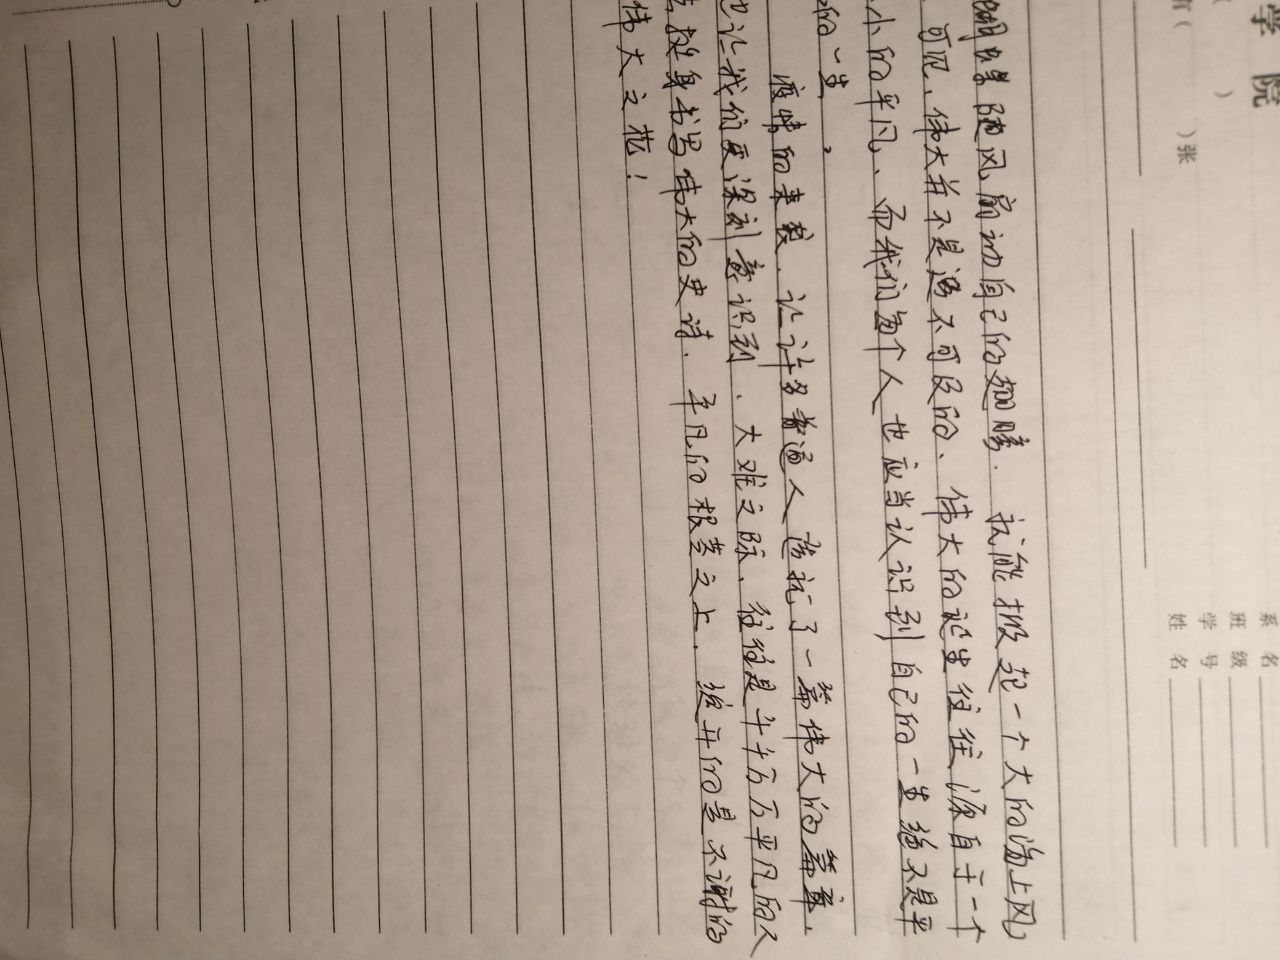 学 院
(    )
有(    )张
系 名
班 级
学 号
姓 名
蝴蝶随风扇动自己的翅膀. 就能掀起一个大的海上风
可见、伟大并不是遥不可及的、伟大的诞生往往源自于一个
小的平凡、而我们每个人也应当认识到自己的一生绝不是平
的一生。
疫情的来袭、让许多普通人谱就了一篇伟大的篇章,
也让我们更深刻意识到、大难之际、往往是千千万万平凡的人
挺身书写伟大的史诗、平凡的根茎之上、绽开的是不谢的
伟大之花!